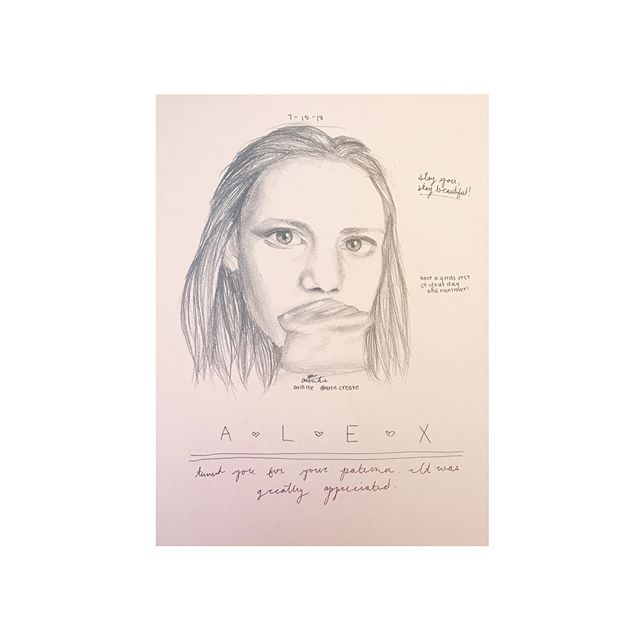 7-15-18
stay you,
stay beautiful!
have a great rest
of your day
and summer!
arin lee @arin.create
A ♡ L ♡ E ♡ X
you for your patience. It was
greatly appreciated.